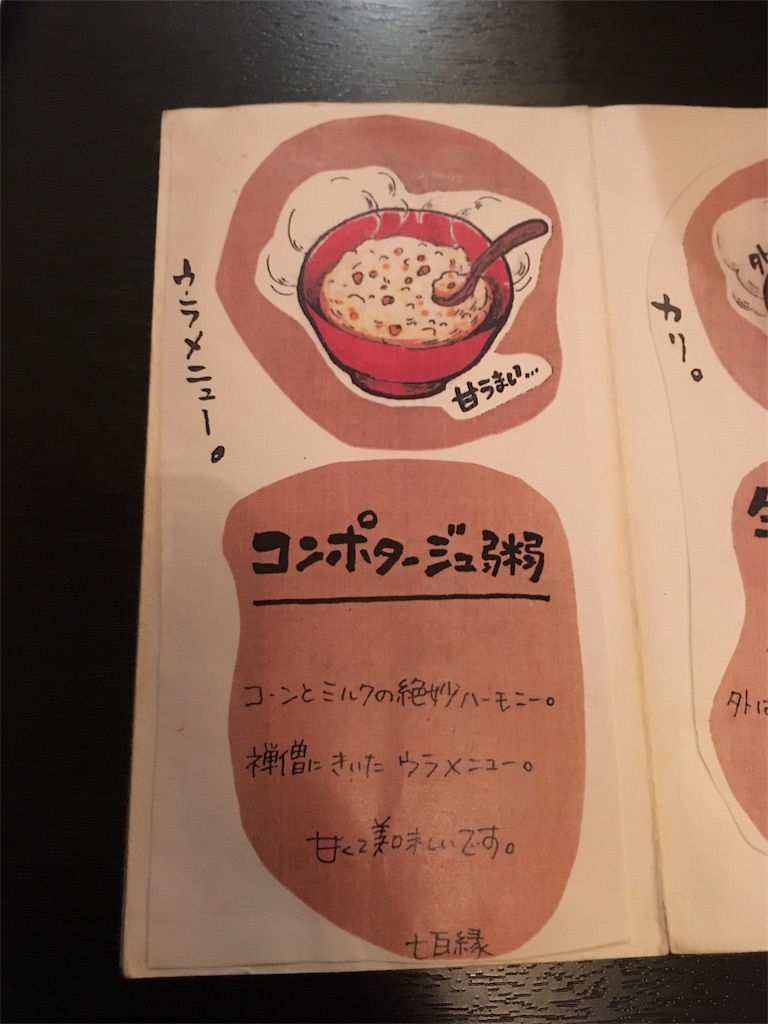 ウラメニュー。
甘うまい…
コンポタージュ粥
コーンとミルクの絶妙ハーモニー。
禅僧にきいたウラメニュー。
甘くて美味しいです。
七百縁
カリ。
外
外は